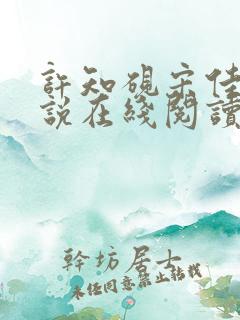 許知硯宋佳
說在綫閱讀
幹坊居士
未經同意禁止轉載